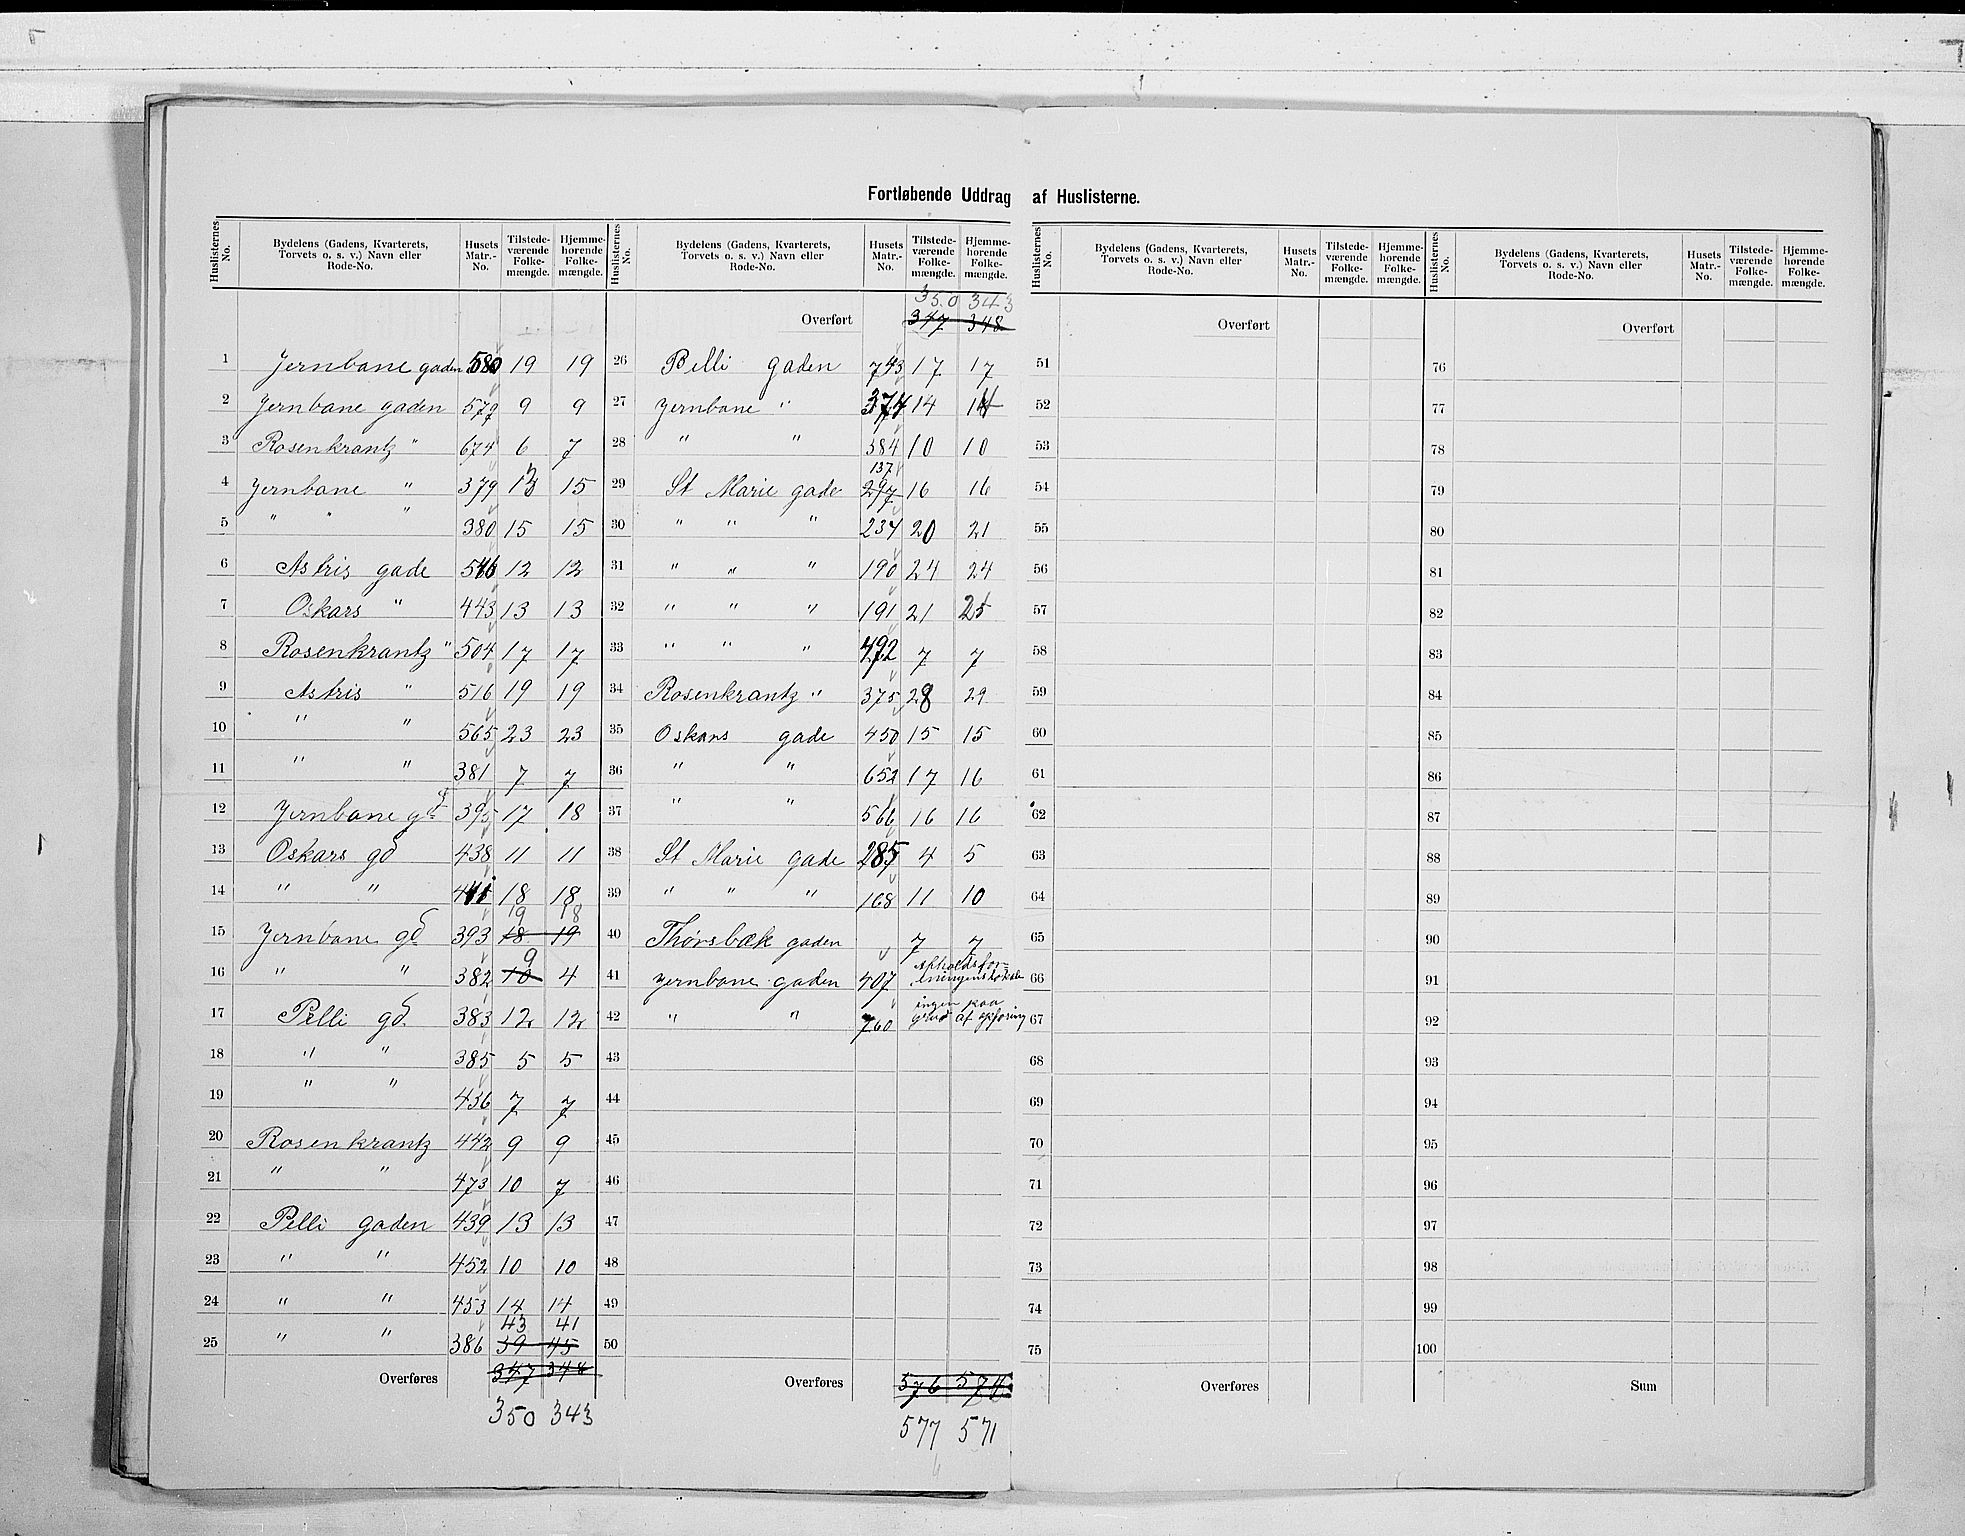 Fortløbende Uddrag af Huslisterne.
Huslisternes No. Bydelens (Gadens, Kvarterets, Torvets o. s. v.) Navn eller Rode-No. Husets Matr.-No. Tilstedeværende Folkemængde. Hjemmehørende Folkemængde.
1 Jernbane gaden 580 19 19
2 Jernbane gaden 579 9 9
3 Rosenkrantz " 674 6 7
4 Jernbane " 379 13 15
5 " " " 380 15 15
6 Astris gade 546 12 12
7 Oskars " 443 13 13
8 Rosenkrantz " 504 17 17
9 Astris " 516 19 19
10 " " 565 23 23
11 " " 381 7 7
12 Jernbane gd 395 17 18
13 Oskars gd 438 11 11
14 " " 441 18 18
19 18
15 Jernbane gd 393 18 19
9
16 " " 382 10 4
17 Pelli gd. 383 12 12
18 " " 385 5 5
19 " " 436 7 7
20 Rosenkrantz 442 9 9
21 " " 473 10 7
22 Pelli gaden 439 13 13
23 " " 452 10 10
24 " " 453 14 14
43 41
25 " " 386 39 45
Overføres 347 348
350 343
Huslisternes No. Bydelens (Gadens, Kvarterets, Torvets o. s. v.) Navn eller Rode-No. Husets Matr.-No. Tilstedeværende Folkemængde. Hjemmehørende Folkemængde.
350 343
Overført 347 348
26 Pelli gaden 743 17 17
27 Jernbane " 374 14 14
28 " " 384 10 10
137
29 St Marie gade 297 16 16
30 " " " 237 20 21
31 " " " 190 24 24
32 " " " 191 21 25
33 " " " 492 7 7
34 Rosenkrantz " 375 28 29
35 Oskars gade 450 15 15
36 " " 652 17 16
37 " " 566 16 16
38 St Marie gade 285 4 5
39 " " " 168 11 10
40 Thorsbæk gaden 7 7
41 Jernbane gaden 407 Afholdsforeningens Lokale
42 " " 760 ingen paa grund af opføring
43
44
45
46
47
48
49
50
Overføres 576 574
577 571
Huslisternes No. Bydelens (Gadens, Kvarterets, Torvets o. s. v.) Navn eller Rode-No. Husets Matr.-No. Tilstedeværende Folkemængde. Hjemmehørende Folkemængde.
Overført
51
52
53
54
55
56
57
58
59
60
61
62
63
64
65
66
67
68
69
70
71
72
73
74
75
Overføres
Huslisternes No. Bydelens (Gadens, Kvarterets, Torvets o. s. v.) Navn eller Rode-No. Husets Matr.-No. Tilstedeværende Folkemængde. Hjemmehørende Folkemængde.
Overført
76
77
78
79
80
81
82
83
84
85
86
87
88
89
90
91
92
93
94
95
96
97
98
99
100
Sum